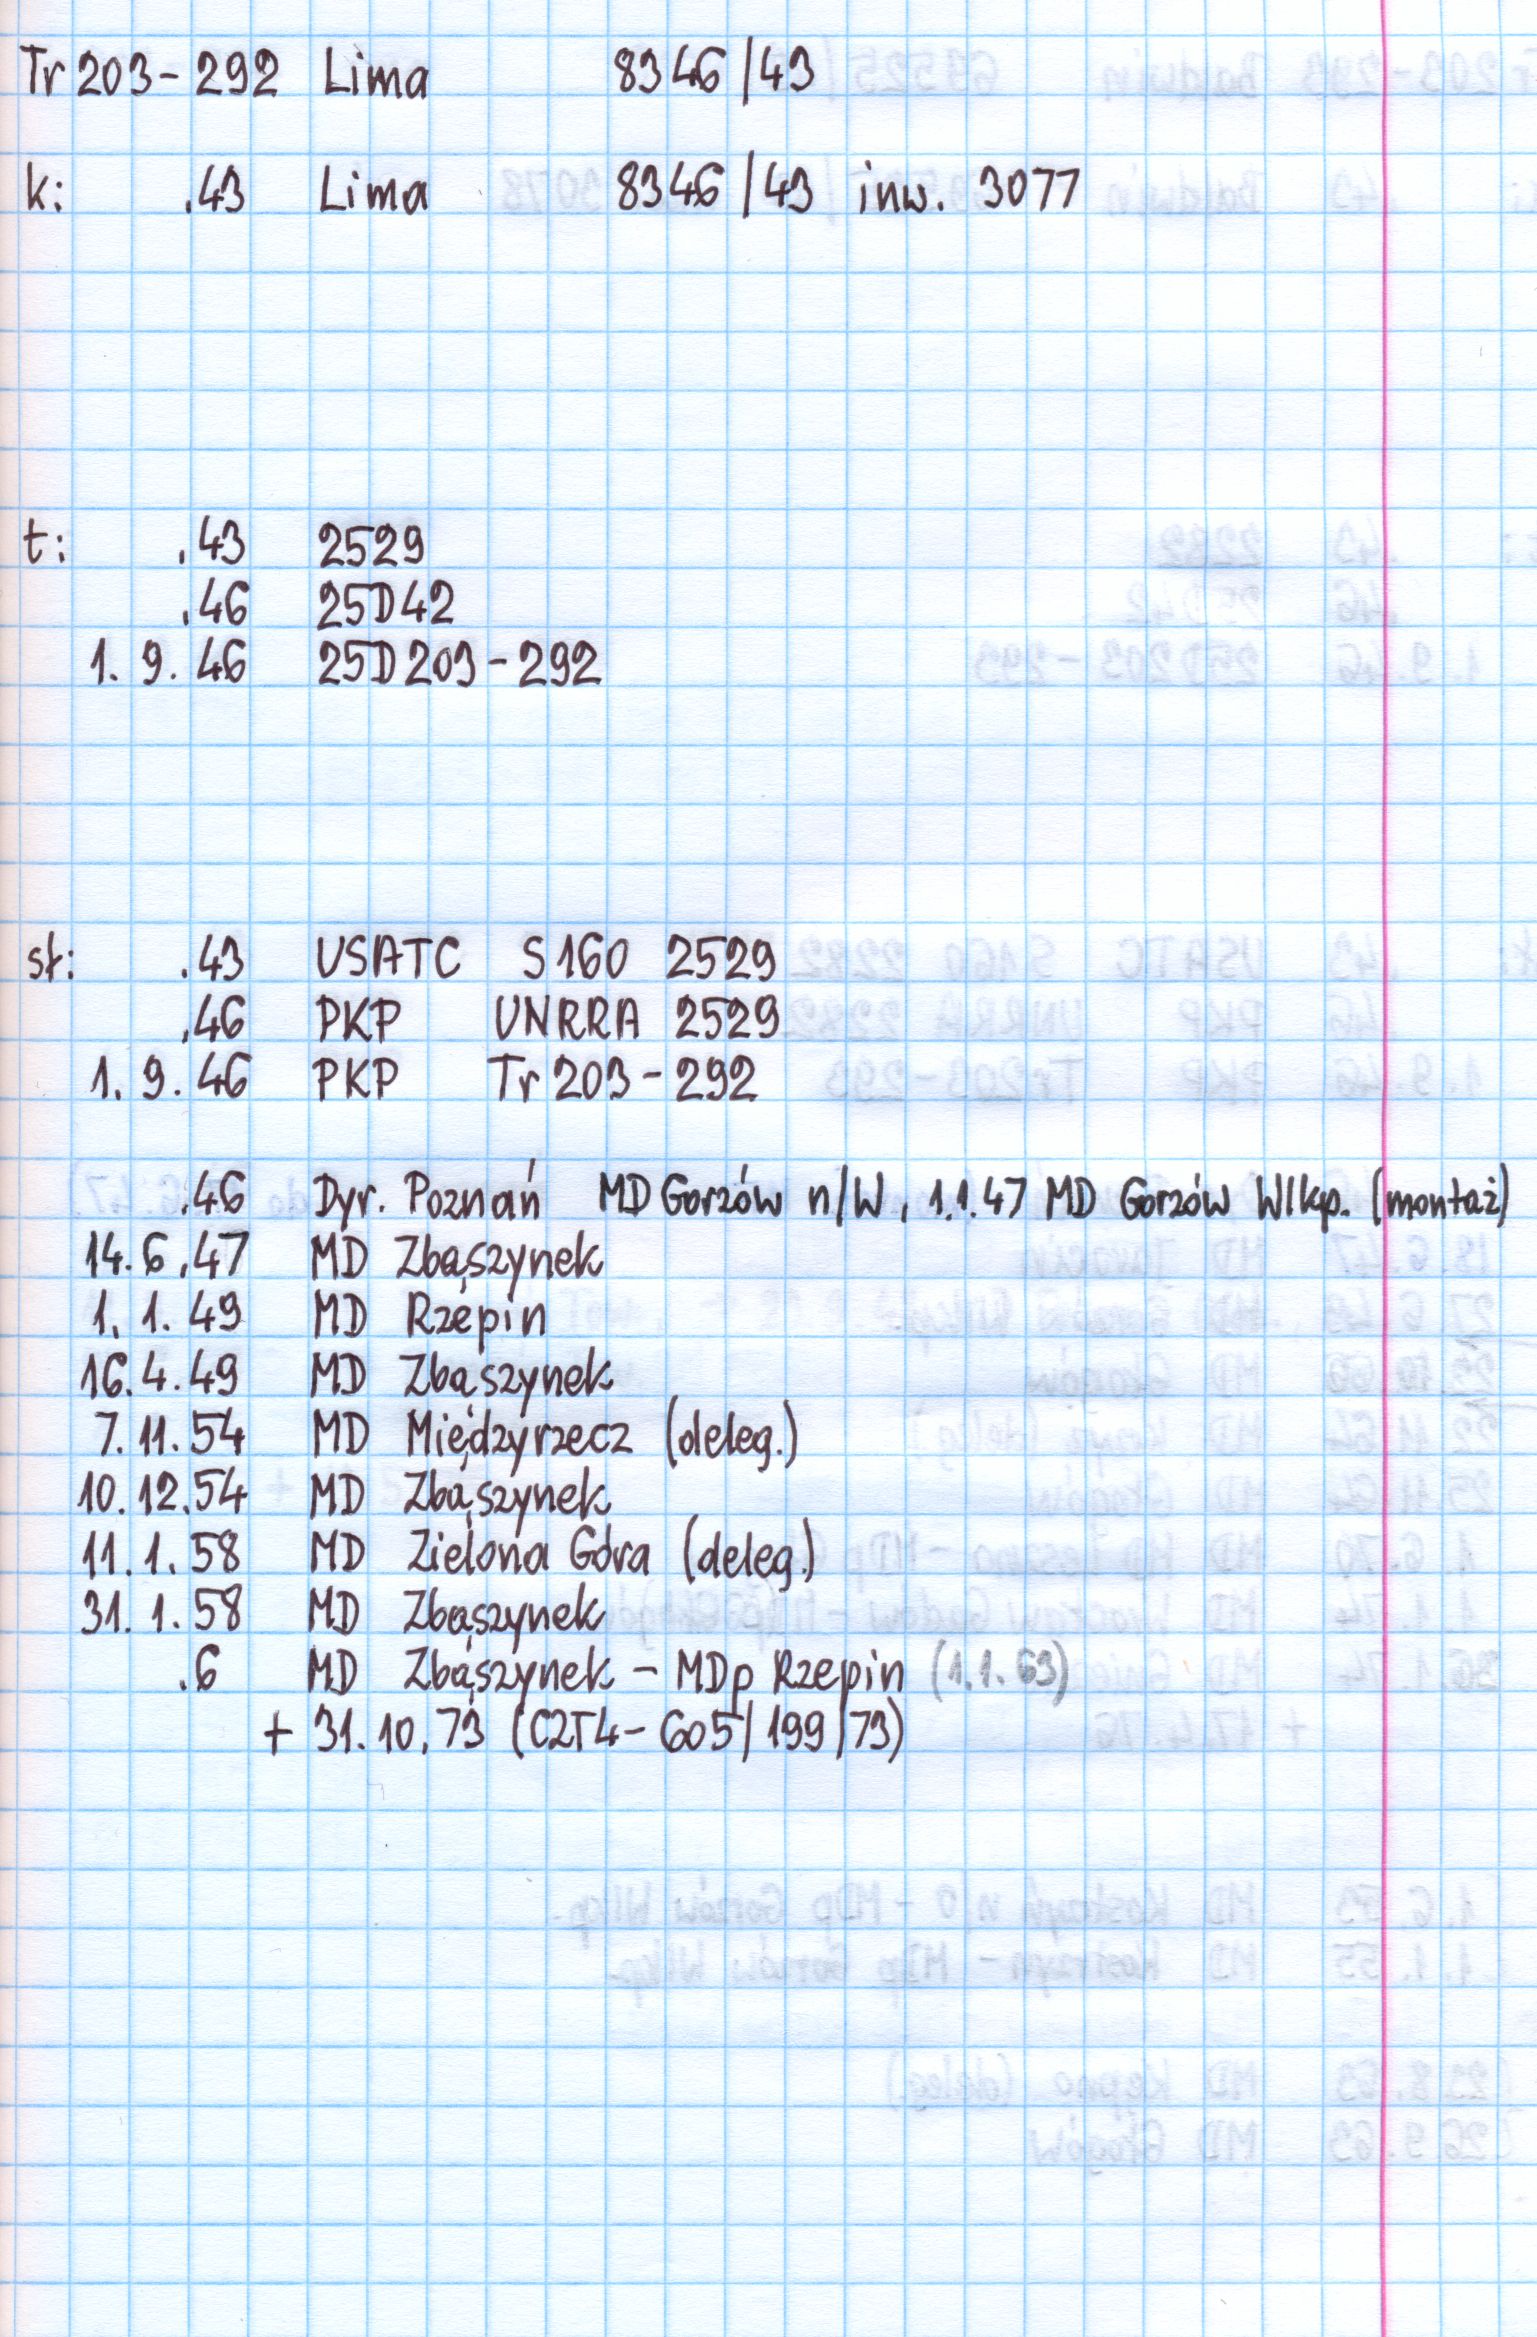 Tr 203 - 292 Lima 8346/43
k: .43 Lima 8346/43 inw. 3077
t: .43 2529
.46 25D42
1. 9. 46 25D203 - 292
sł: .43 USATC S160 2529
.46 PKP UNRRA 2529
1. 9. 46 PKP Tr 203 - 292
.46 Dyr. Poznań MD Gorzów n/W, 1.1.47 MD Gorzów Wlkp. (montaż)
14. 6. 47 MD Zbąszynek
1. 1. 49 MD Rzepin
16. 4. 49 MD Zbąszynek
7. 11. 54 MD Międzyrzecz (deleg.)
10. 12. 54 MD Zbąszynek
11. 1. 58 MD Zielona Góra (deleg.)
31. 1. 58 MD Zbąszynek
.6 MD Zbąszynek - MDp Rzepin (1.1.63)
+ 31. 10. 73 (CZT4 - 605/199/73)